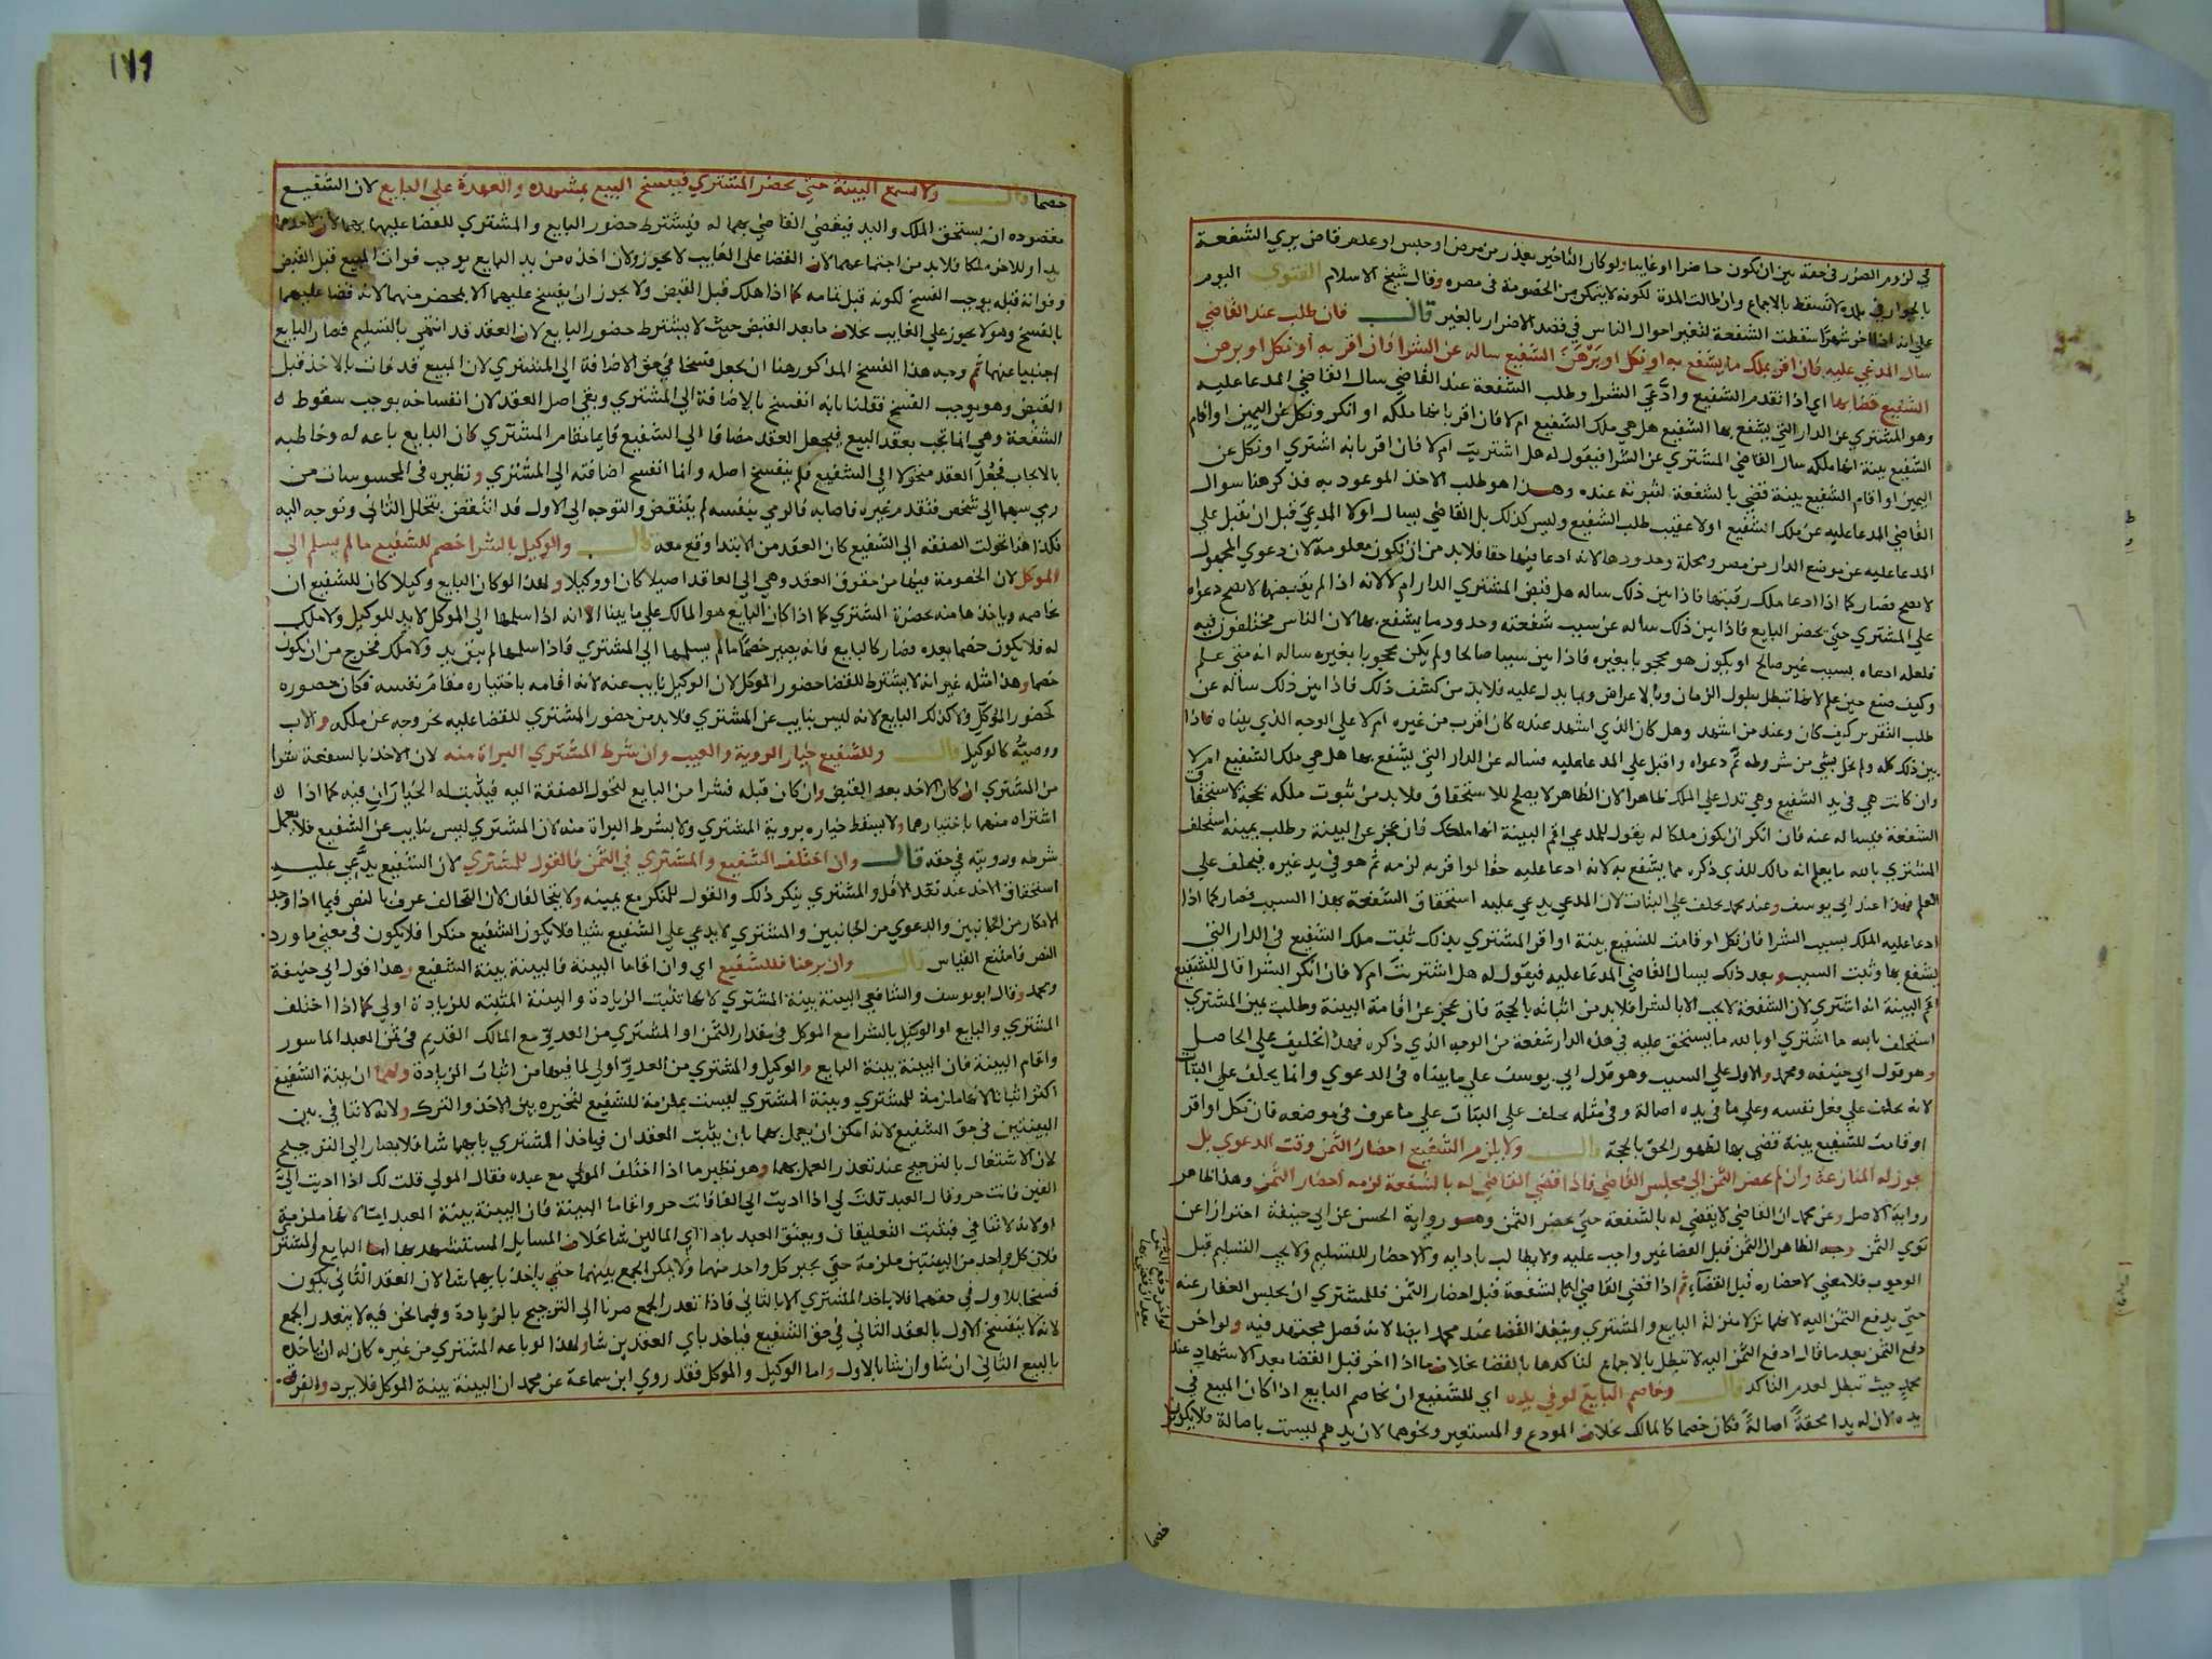 في لزوم الضرر في حقه بين ان يكون حاضرا او غايبا ولو كان التاخير بعذر من مرض او حبس او عدم قاض يري الشفعة
بالجوار في بلده لا تسقط بالاجماع وان طالت المدة لكونه لا يتمكن من الخصومة في مصره وقال شيخ الاسلام الفتوى اليوم
علي انه اذا اخر شهرا سقطت الشفعة لتغير احوال الناس في قصد الاضرار بالغير قال فان طلب عند القاضي
سال المدعي عليه فان اقر بملك ما يشفع به او نكل او برهن الشفيع ساله عن الشرا فان اقر به او نكل او برهن
الشفيع قضا بها اي اذا تقدم الشفيع وادعي الشرا وطلب الشفعة عند القاضي سال القاضي المدعا عليه
وهو المشتري عن الدار التي يشفع بها الشفيع هل هي ملك الشفيع ام لا فان اقر بانها ملكه او انكر ونكل عن اليمين او اقام
الشفيع بينة انها ملكه سال القاضي المشتري عن الشرا فيقول له هل اشتريت ام لا فان اقر بانه اشتري او نكل عن
اليمين او اقام الشفيع بينة قضي بالشفعة لثبوته عنده وهذا هو طلب الاخذ الموعود به فذكر هنا سوال
القاضي المدعا عليه عن ملك الشفيع اولا عقيب طلب الشفيع وليس كذلك بل القاضي يسال اولا المدعي قبل ان يقبل علي
المدعا عليه عن موضع الدار من مصر ومحلة وحدودها لانه ادعا فيها حقا فلا بد من ان تكون معلومة لان دعوي المجهول
لا تصح فصار كما اذا ادعا ملك رقبتها فاذا بين ذلك ساله هل قبض المشتري الدار ام لا لانه اذا لم يقبضها لا تصح دعواه
علي المشتري حتي يحضر البايع فاذا بين ذلك ساله عن سبب شفعته وحدود ما يشفع بها لان الناس مختلفون فيه
فلعله ادعاه بسبب غير صالح او يكون هو محجوبا بغيره فاذا بين سببا صالحا ولم يكن محجوبا بغيره ساله انه متي علم
وكيف صنع حين علم لانها تبطل بطول الزمان وبالاعراض وبما يدل عليه فلا بد من كشف ذلك فاذا بين ذلك ساله عن
طلب التقرير كيف كان وعند من اشهد وهل كان الذي اشهد عنده كان اقرب من غيره ام لا علي الوجه الذي بيناه فاذا
بين ذلك كله ولم يخل بشي من شروطه تم دعواه واقبل علي المدعا عليه فساله عن الدار التي يشفع بها هل هي ملك الشفيع ام لا
وان كانت هي في يد الشفيع وهي تدل علي الملك ظاهرا لان الظاهر لا يصلح للاستحقاق فلا بد من ثبوت ملكه بحجة لاستحقاق
الشفعة فيساله عنه فان انكر ان يكون ملكا له يقول للمدعي اقم البينة انها ملكك فان عجز عن البينة وطلب يمينه استحلف
المشتري بالله ما يعلم انه مالك للذي ذكره مما يشفع به لانه ادعا عليه حقا لو اقر به لزمه ثم هو في يد غيره فيحلف علي
العلم وهذا عند ابي يوسف وعند محمد يحلف علي البتات لان المدعي يدعي عليه استحقاق الشفعة بهذا السبب فصار كما اذا
ادعا عليه الملك بسبب الشرا فان نكل او قامت للشفيع بينة او اقر المشتري بذلك ثبت ملك الشفيع في الدار التي
يشفع بها وثبت السبب وبعد ذلك يسال القاضي المدعا عليه فيقول له هل اشتريت ام لا فان انكر الشرا قال للشفيع
اقم البينة انه اشتري لان الشفعة لا تجب الا بالشرا فلا بد من اثباته بالحجة فان عجز عن اقامة البينة وطلب يمين المشتري
استحلف بالله ما اشتري او بالله ما يستحق عليه في هذه الدار شفعة من الوجه الذي ذكره فهذا تحليف علي الحاصل
وهو قول ابي حنيفه ومحمد والاول علي السبب وهو قول ابي يوسف علي ما بيناه في الدعوي وانما يحلف علي البتات
لانه يحلف علي فعل نفسه وعلي ما في يده اصالة وفي مثله يحلف علي البتات علي ما عرف في موضعه فان نكل او اقر
او قامت للشفيع بينة قضي بها لظهور الحق بالحجة قال ولا يلزم الشفيع احضار الثمن وقت الدعوي بل
يجوز له المنازعة وان لم يحضر الثمن الي مجلس القاضي فاذا قضي القاضي له بالشفعة لزمه احضار الثمن وهذا ظاهر
رواية الاصل وعن محمد ان القاضي لا يقضي له بالشفعة حتي يحضر الثمن وهو رواية الحسن عن ابي حنيفة احترازا عن
توي الثمن وجه الظاهر ان الثمن قبل القضا غير واجب عليه ولا يطالب بادايه والاحضار للتسليم ولا يجب التسليم قبل
الوجوب فلا معني لاحضاره قبل القضاء ثم اذا قضي القاضي له بالشفعة قبل احضار الثمن فللمشتري ان يحبس العقار عنه
حتي يدفع الثمن اليه لانهما نزلا منزلة البايع والمشتري وينفذ القضا عند محمد ايضا لانه فصل مجتهد فيه ولو اخر
دفع الثمن بعد ما قال ادفع الثمن اليه لا تبطل بالاجماع لتاكدها بالقضا بخلاف ما اذا اخر قبل القضا بعد الاشهاد عند
محمد حيث تبطل لعدم التاكد قال وخاصم البايع لو في يده اي للشفيع ان يخاصم البايع اذا كان المبيع في
يده لان له يدا محقة اصالة فكان خصما كالمالك بخلاف المودع والمستعير ونحوهما لان يدهم ليست باصالة فلا يكون
خصما
١٧٩
خصما قال ولا يسمع البينة حتي يحضر المشتري فيفسخ البيع بمشهده والعهدة علي البايع لان الشفيع
مقصوده ان يستحق الملك واليد فيقضي القاضي بهما له فيشترط حضور البايع والمشتري للقضا عليهما بهما لان لاحدهما
يدا وللاخر ملكا فلا بد من اجتماعهما لان القضا علي الغايب لا يجوز ولان اخذه من يد البايع يوجب فوات المبيع قبل القبض
وفواته قبله يوجب الفسخ لكونه قبل تمامه كما اذا هلك قبل القبض ولا يجوز ان يفسخ عليهما الا بمحضر منهما لانه قضا عليهما
بالفسخ وهو لا يجوز علي الغايب بخلاف ما بعد القبض حيث لا يشترط حضور البايع لان العقد قد انتهي بالتسليم فصار البايع
اجنبيا عنهما ثم وجه هذا الفسخ المذكور هنا ان يجعل فسخا في حق الاضافة الي المشتري لان المبيع قد فات بالاخذ قبل
القبض وهو يوجب الفسخ فقلنا بانه انفسخ بالاضافة الي المشتري وبقي اصل العقد لان انفساخه يوجب سقوط
الشفعة وهي انما تجب بعقد البيع فيجعل العقد مضافا الي الشفيع قايما مقام المشتري كان البايع باعه له وخاطبه
بالايجاب فجعل العقد متحولا الي الشفيع فلم ينفسخ اصله وانما انفسخ اضافته الي المشتري ونظيره في المحسوسات من
رمي سهما الي شخص فتقدم غيره فاصابه فالرمي بنفسه لم ينتقض والتوجه الي الاول قد انتقض بتخلل الثاني وتوجه اليه
فكذا هنا تحولت الصفقه الي الشفيع كان العقد من الابتدا وقع معه قال والوكيل بالشرا خصم للشفيع ما لم يسلم الي
الموكل لان الخصومة فيها من حقوق العقد وهي الي العاقد اصيلا كان او وكيلا ولهذا لو كان البايع وكيلا كان للشفيع ان
يخاصمه وياخذها منه بحضرة المشتري كما اذا كان البايع هو المالك علي ما بينا الا انه اذا سلمها الي الموكل لا يد للوكيل ولا ملك
له فلا يكون خصما بعده فصار كالبايع فانه يصير خصما ما لم يسلمها الي المشتري فاذا سلمها لم يبق يد ولا ملك فخرج من ان يكون
خصما وهذا مثله غير انه لا يشترط للقضا حضور الموكل لان الوكيل نايب عنه لانه اقامه باختياره مقام نفسه فكان حضوره
كحضور الموكل ولا كذلك البايع لانه ليس بنايب عن المشتري فلا بد من حضور المشتري للقضا عليه بخروجه عن ملكه والاب
ووصيه كالوكيل قال وللشفيع خيار الروية والعيب وان شرط المشتري البراة منه لان الاخذ بالشفعة شرا
من المشتري ان كان الاخذ بعد القبض وان كان قبله فشرا من البايع لتحول الصفقة اليه فيثبت له الخياران فيه كما اذا
اشتراه منهما باختيارهما ولا يسقط خياره بروية المشتري ولا بشرط البراة منه لان المشتري ليس بنايب عن الشفيع فلا يعمل
شرطه ورويته في حقه قال وان اختلف الشفيع والمشتري في الثمن فالقول للمشتري لان الشفيع يدعي عليه
استحقاق الاخذ عند نقد الاقل والمشتري ينكر ذلك والقول للمنكر مع يمينه ولا يتحالفان لان التحالف عرف بالنص فيما اذا وجد
الانكار من الجانبين والدعوي من الجانبين والمشتري لا يدعي علي الشفيع شيا فلا يكون الشفيع منكرا فلا يكون في معني ما ورد
النص فامتنع القياس قال وان برهنا فللشفيع اي وان اقاما البينة فالبينة بينة الشفيع وهذا قول ابي حنيفة
ومحمد وقال ابو يوسف والشافعي البينة بينة المشتري لانها تثبت الزيادة والبينة المثبته للزيادة اولي كما اذا اختلف
المشتري والبايع او الوكيل بالشرا مع الموكل في مقدار الثمن او المشتري من العدو مع المالك القديم في ثمن العبد الماسور
واقام البينة فان البينة بينة البايع والوكيل والمشتري من العدو اولي لما فيها من اثبات الزيادة ولهما ان بينة الشفيع
اكثر اثباتا لانها ملزمة للمشتري وبينة المشتري ليست بملزمة للشفيع لتخيره بين الاخذ والترك ولانه لا تنافي بين
البينتين في حق الشفيع لانه امكن ان يعمل بهما بان يثبت العقدان فياخذ المشتري بايهما شا فلا يصار الي الترجيح
لان الاشتغال بالترجيح عند تعذر العمل بهما وهو نظير ما اذا اختلف المولي مع عبده فقال المولي قلت لك اذا اديت الي
الفين فانت حر وقال العبد قلت لي اذا اديت الي الفا فانت حر واقاما البينة فان البينة بينة العبد اما لانها ملزمة
او لانه لا تنافي فيثبت التعليقان ويعتق العبد باداء اي المالين شا بخلاف المسايل المستشهد بها اما البايع والمشتري
فلان كل واحد من البينتين ملزمة حتي يجبر كل واحد منهما ولا يمكن الجمع بينهما حتي ياخذ بايهما شا لان العقد الثاني يكون
فسخا للاول في حقهما فلا ياخذ المشتري الا بالثاني فاذا تعذر الجمع صرنا الي الترجيح بالزيادة وفيما نحن فيه لا يتعذر الجمع
لانه لا ينفسخ الاول بالعقد الثاني في حق الشفيع فياخذ باي العقدين شا ولهذا لو باعه المشتري من غيره كان له ان ياخذه
بالبيع الثاني ان شا وان شا بالاول واما الوكيل والموكل فقد روي ابن سماعة عن محمد ان البينة بينة الموكل فلا يرد والفرق